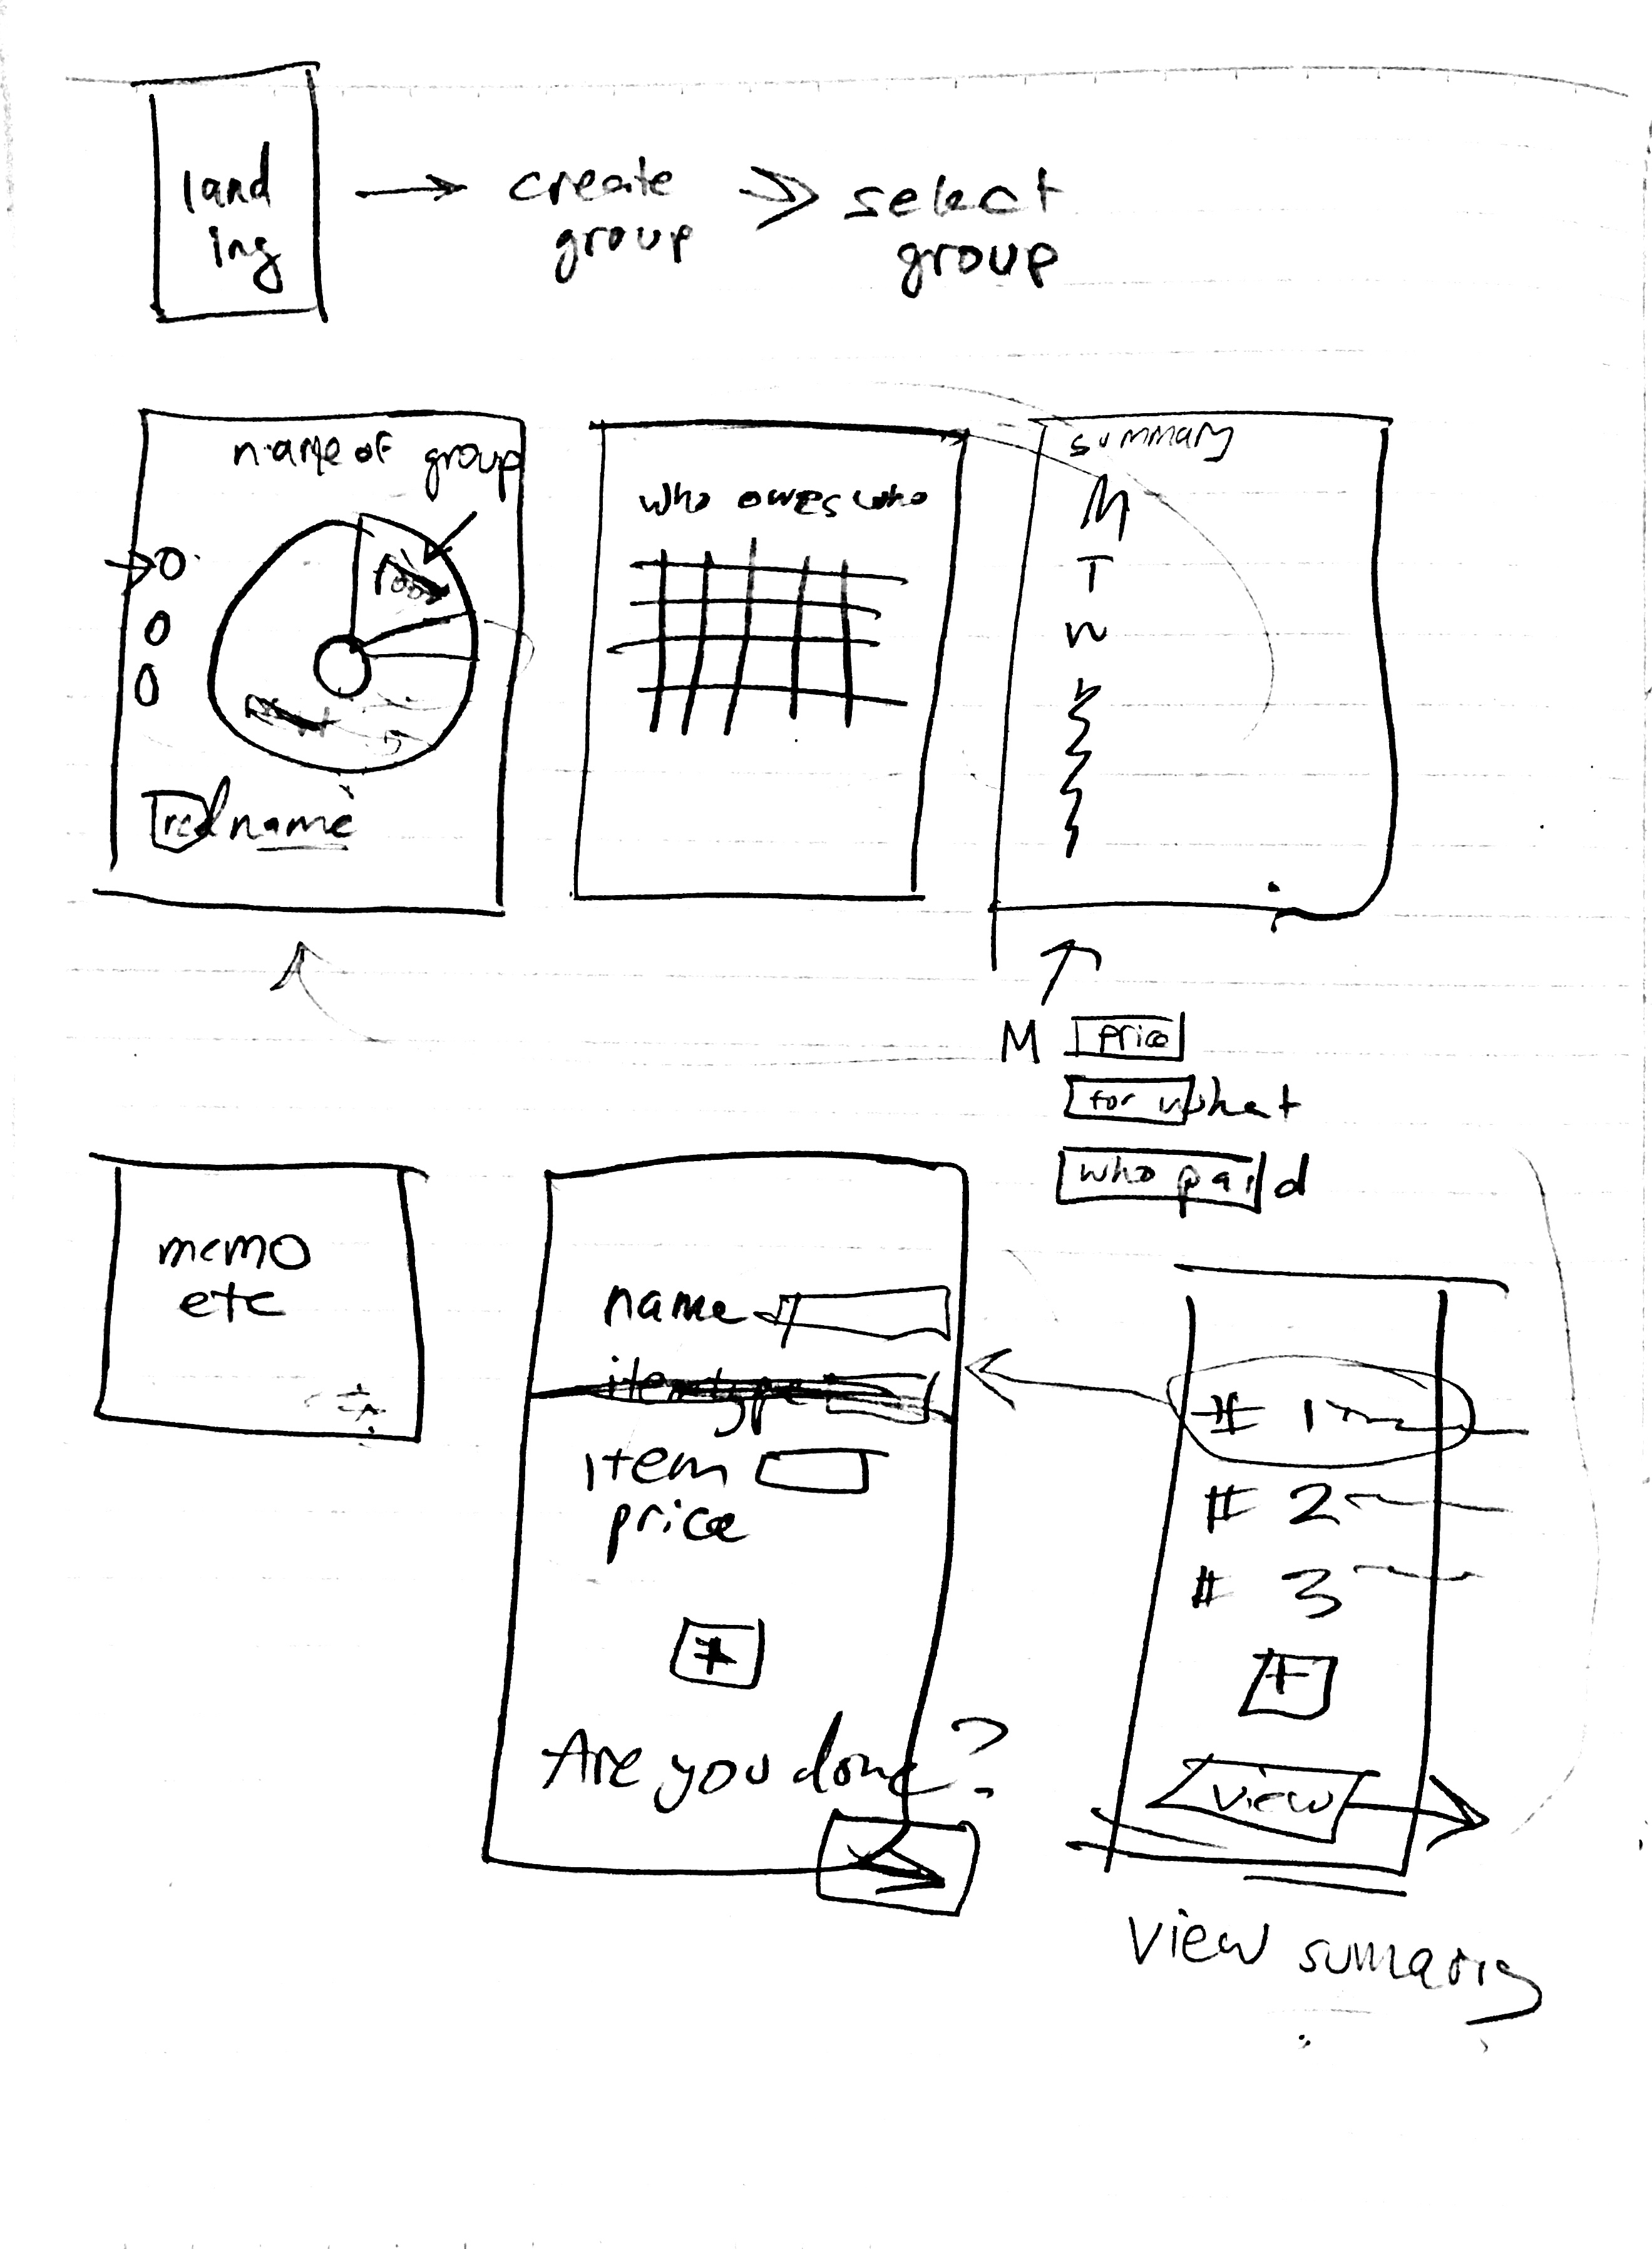 land
ing
create
group
select
group
name of group
red name
who owes who
summary
M
T
W
M
price
for what
who paid
memo
etc
name
item
price
+
Are you done?
# 1
# 2
# 3
+
view
view sumary